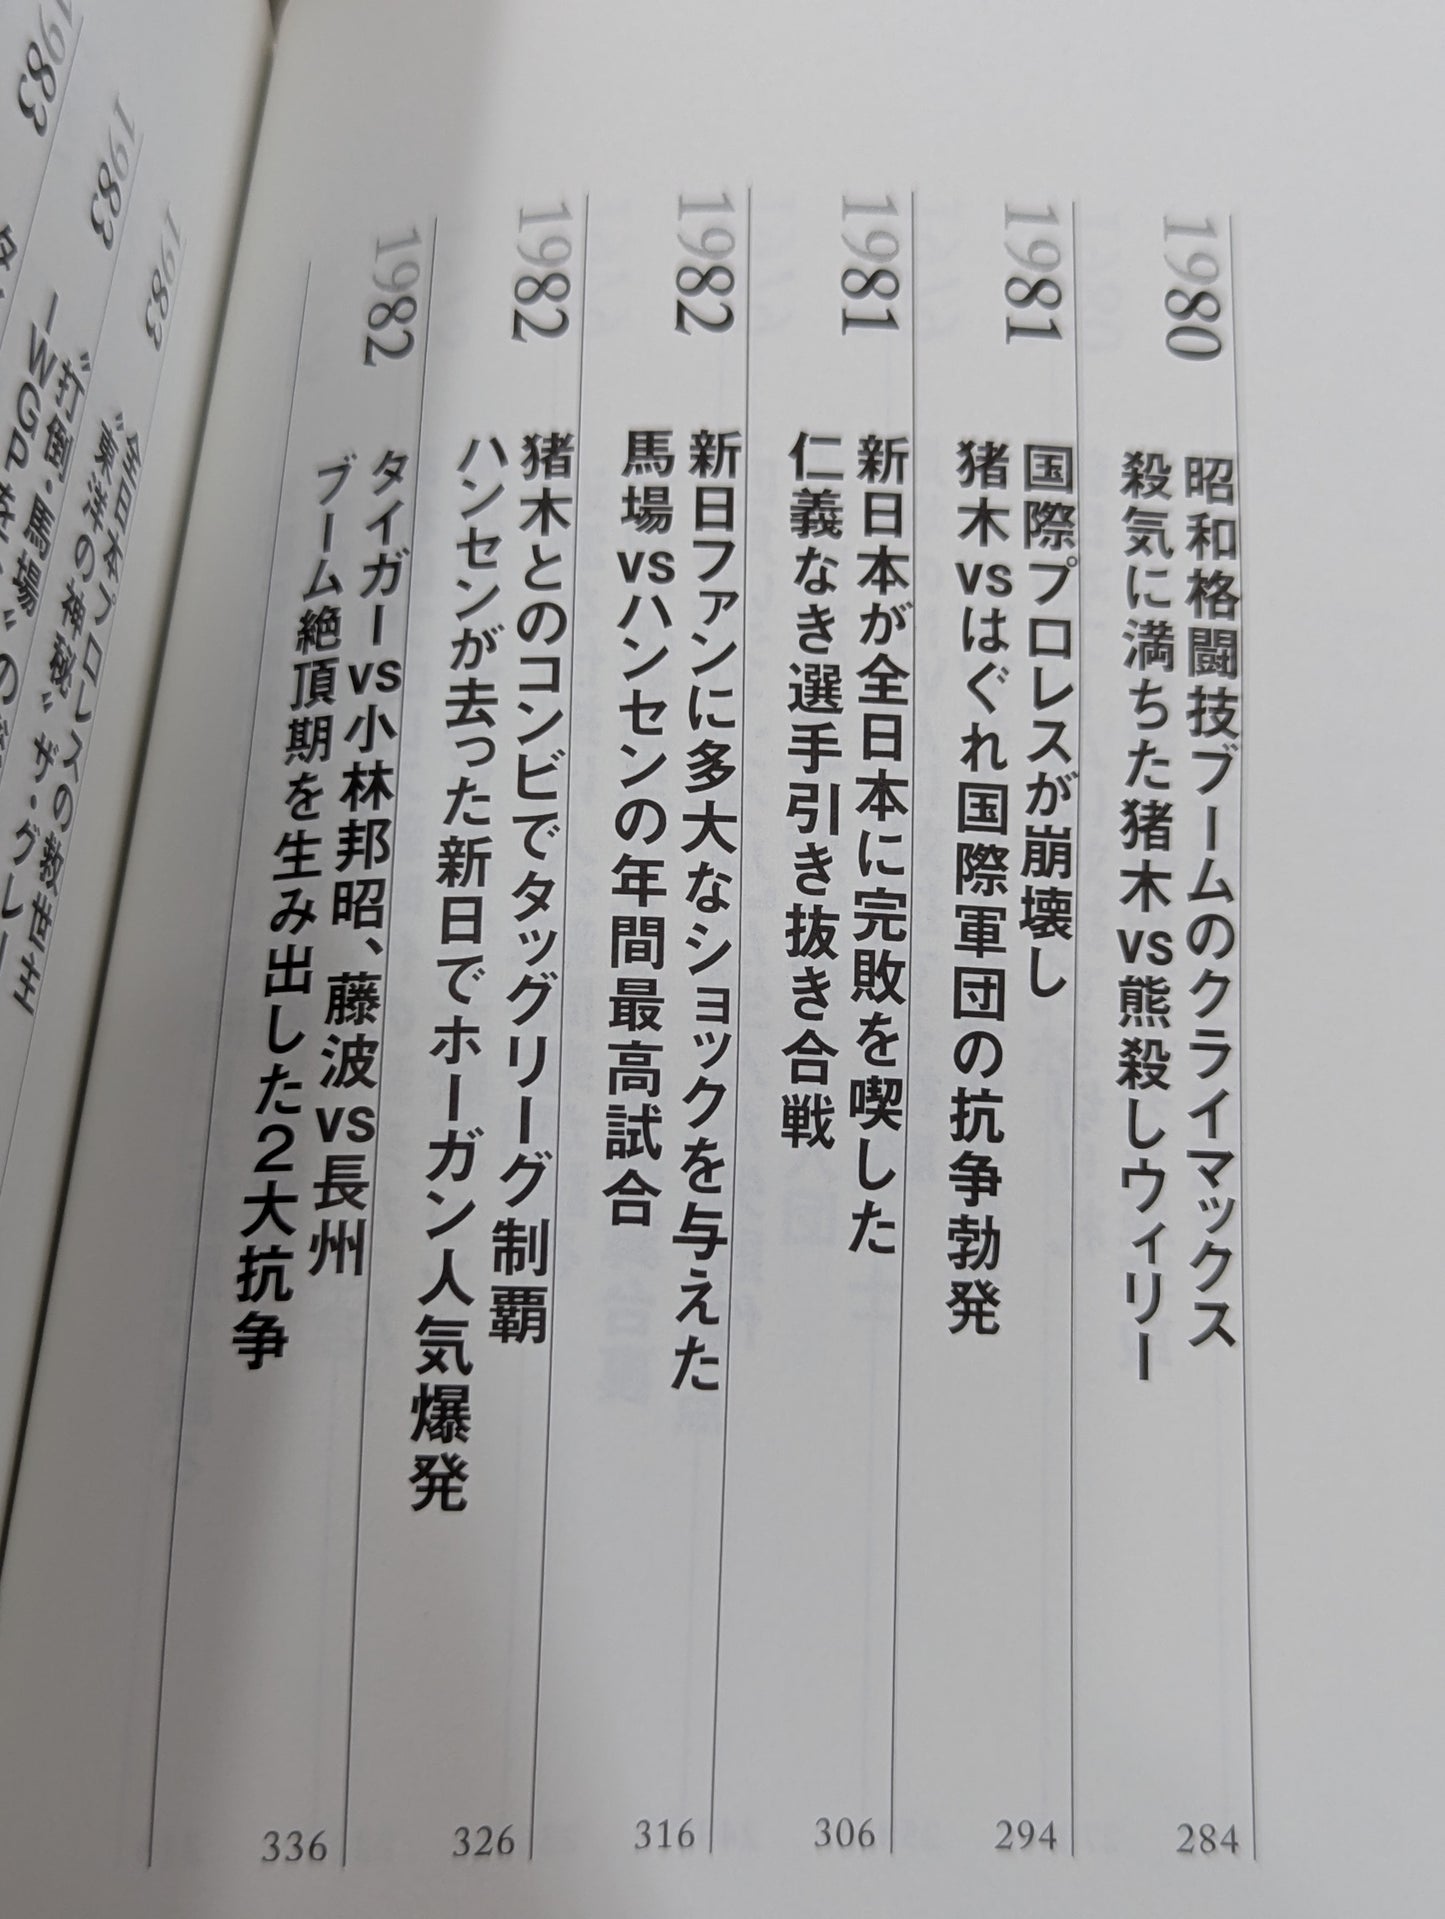 1980
昭和格闘技ブームのクライマックス
殺気に満ちた猪木vs熊殺しウィリー
284
1981
国際プロレスが崩壊し
猪木vsはぐれ国際軍団の抗争勃発
294
1981
新日本が全日本に完敗を喫した
仁義なき選手引き抜き合戦
306
1982
新日ファンに多大なショックを与えた
馬場vsハンセンの年間最高試合
316
1982
猪木とのコンビでタッグリーグ制覇
ハンセンが去った新日でホーガン人気爆発
326
1982
タイガーvs小林邦昭、藤波vs長州
ブーム絶頂期を生み出した2大抗争
336
1983
全日本プロレスの救世主
“東洋の神秘”ザ・グレ
1983
“打倒・馬場”の
IWGP
1983